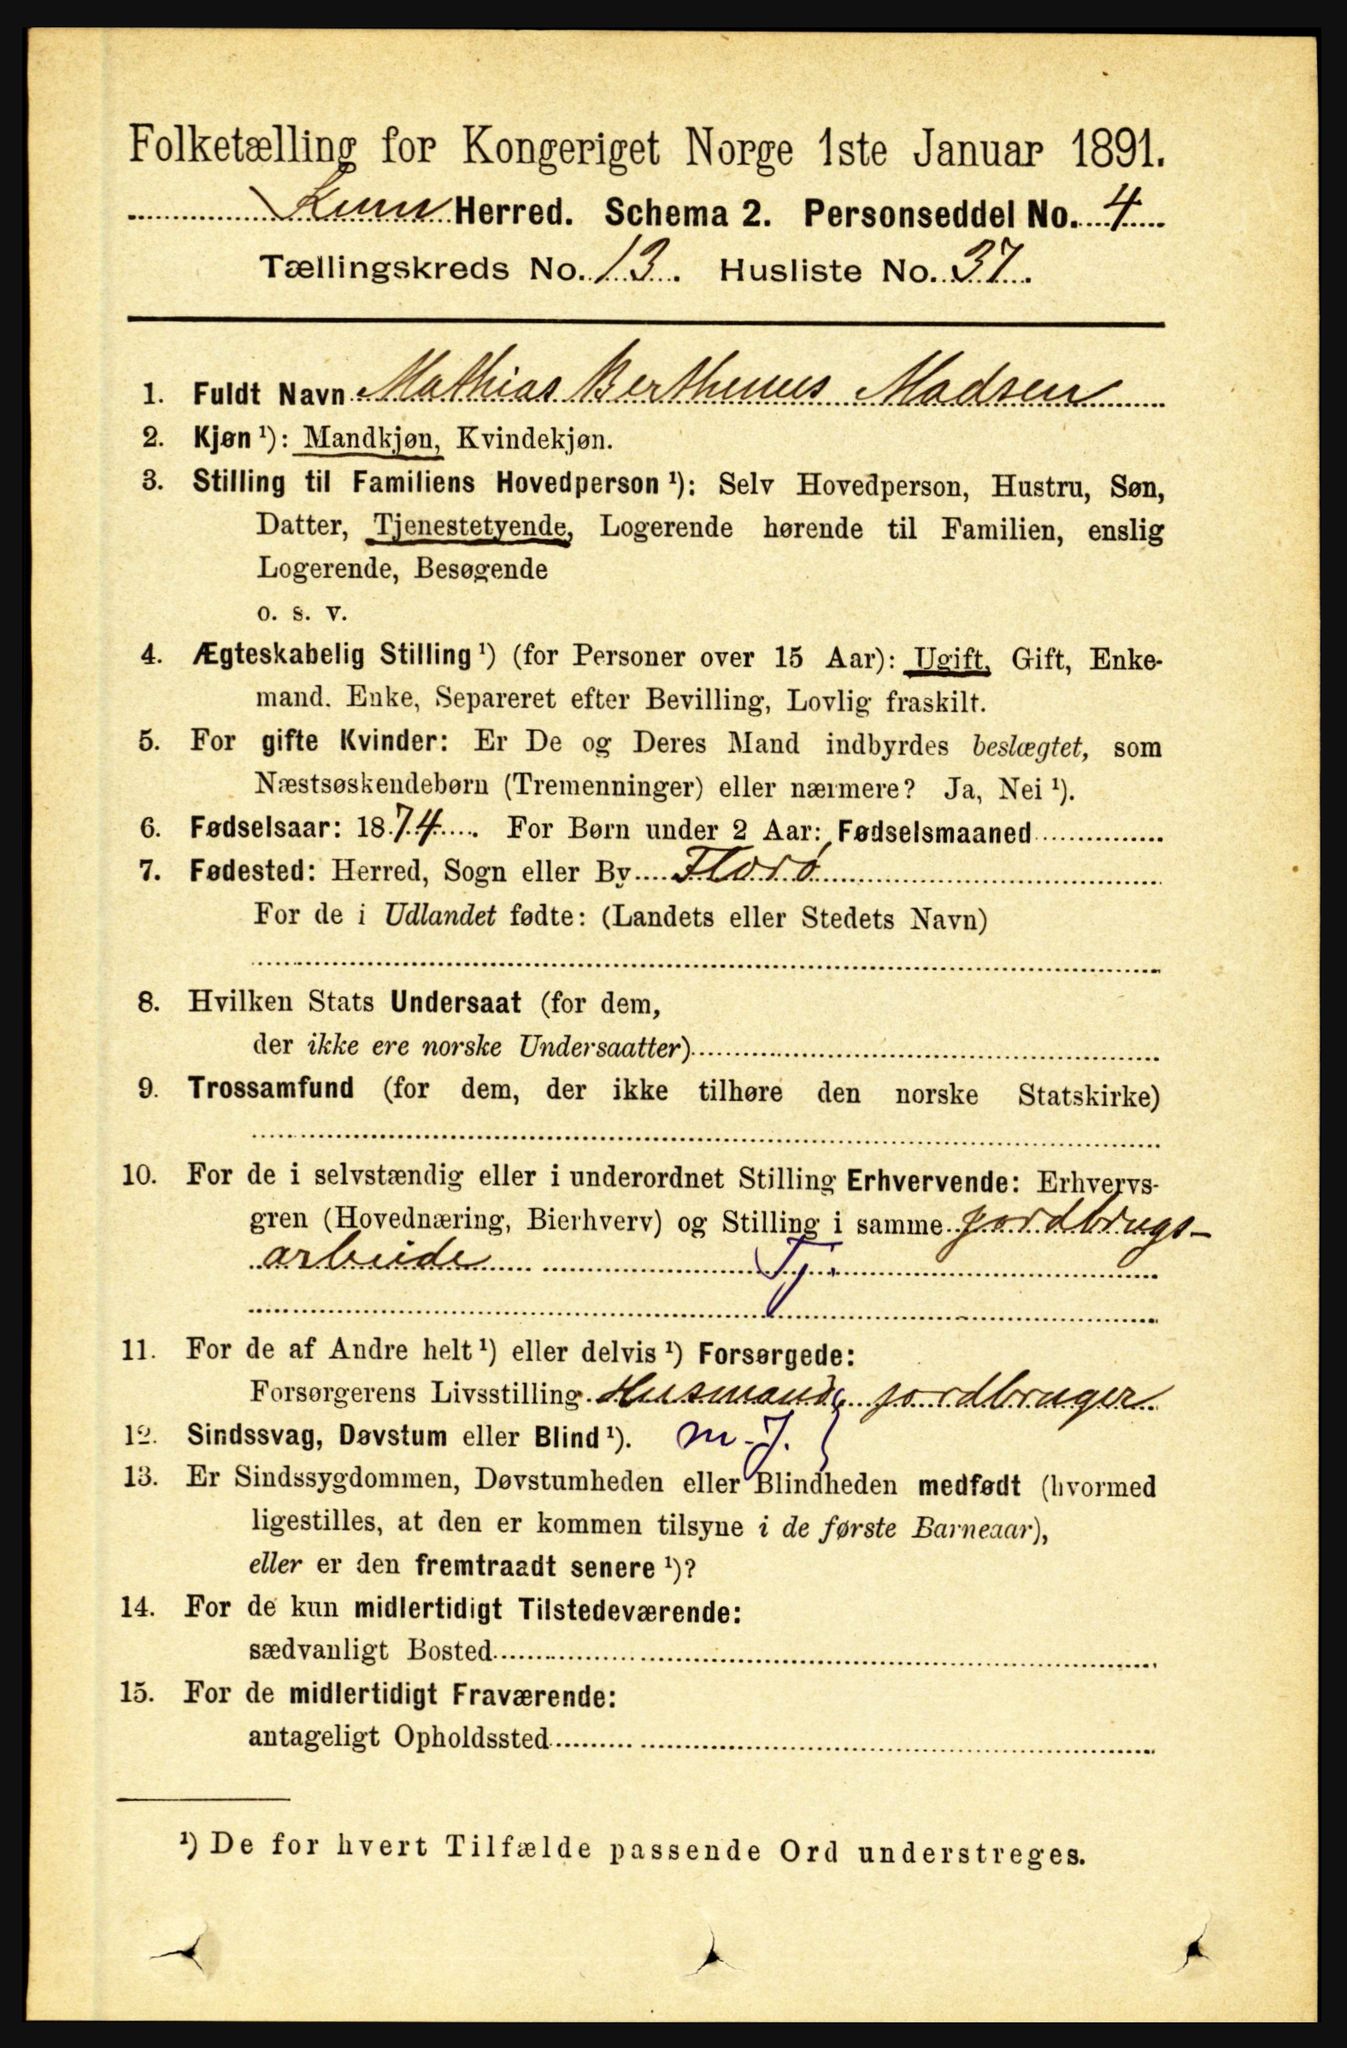 Folketælling for Kongeriget Norge 1ste Januar 1891.
Kinn Herred. Schema 2. Personseddel No. 4
Tællingskreds No. 13. Husliste No. 37.
1. Fuldt Navn Mathias Berthinus Madsen
2. Kjøn ¹): Mandkjøn, Kvindekjøn.
3. Stilling til Familiens Hovedperson ¹): Selv Hovedperson, Hustru, Søn,
Datter, Tjenestetyende, Logerende hørende til Familien, enslig
Logerende, Besøgende
o. s. v.
4. Ægteskabelig Stilling ¹) (for Personer over 15 Aar): Ugift, Gift, Enke-
mand. Enke, Separeret efter Bevilling, Lovlig fraskilt.
5. For gifte Kvinder: Er De og Deres Mand indbyrdes beslægtet, som
Næstsøskendebørn (Tremenninger) eller nærmere? Ja, Nei ¹).
6. Fødselsaar: 1874. For Børn under 2 Aar: Fødselsmaaned
7. Fødested: Herred, Sogn eller By Florø
For de i Udlandet fødte: (Landets eller Stedets Navn)
8. Hvilken Stats Undersaat (for dem,
der ikke ere norske Undersaatter)
9. Trossamfund (for dem, der ikke tilhøre den norske Statskirke)
10. For de i selvstændig eller i underordnet Stilling Erhvervende: Erhvervs-
gren (Hovednæring, Bierhverv) og Stilling i samme jordbrugs-
arbeide Tj.
11. For de af Andre helt ¹) eller delvis ¹) Forsørgede:
Forsørgerens Livsstilling Husmand, jordbruger
12. Sindssvag, Døvstum eller Blind ¹). m. J.
13. Er Sindssygdommen, Døvstumheden eller Blindheden medfødt (hvormed
ligestilles, at den er kommen tilsyne i de første Barneaar),
eller er den fremtraadt senere ¹)?
14. For de kun midlertidigt Tilstedeværende:
sædvanligt Bosted
15. For de midlertidigt Fraværende:
antageligt Opholdssted
¹) De for hvert Tilfælde passende Ord understreges.